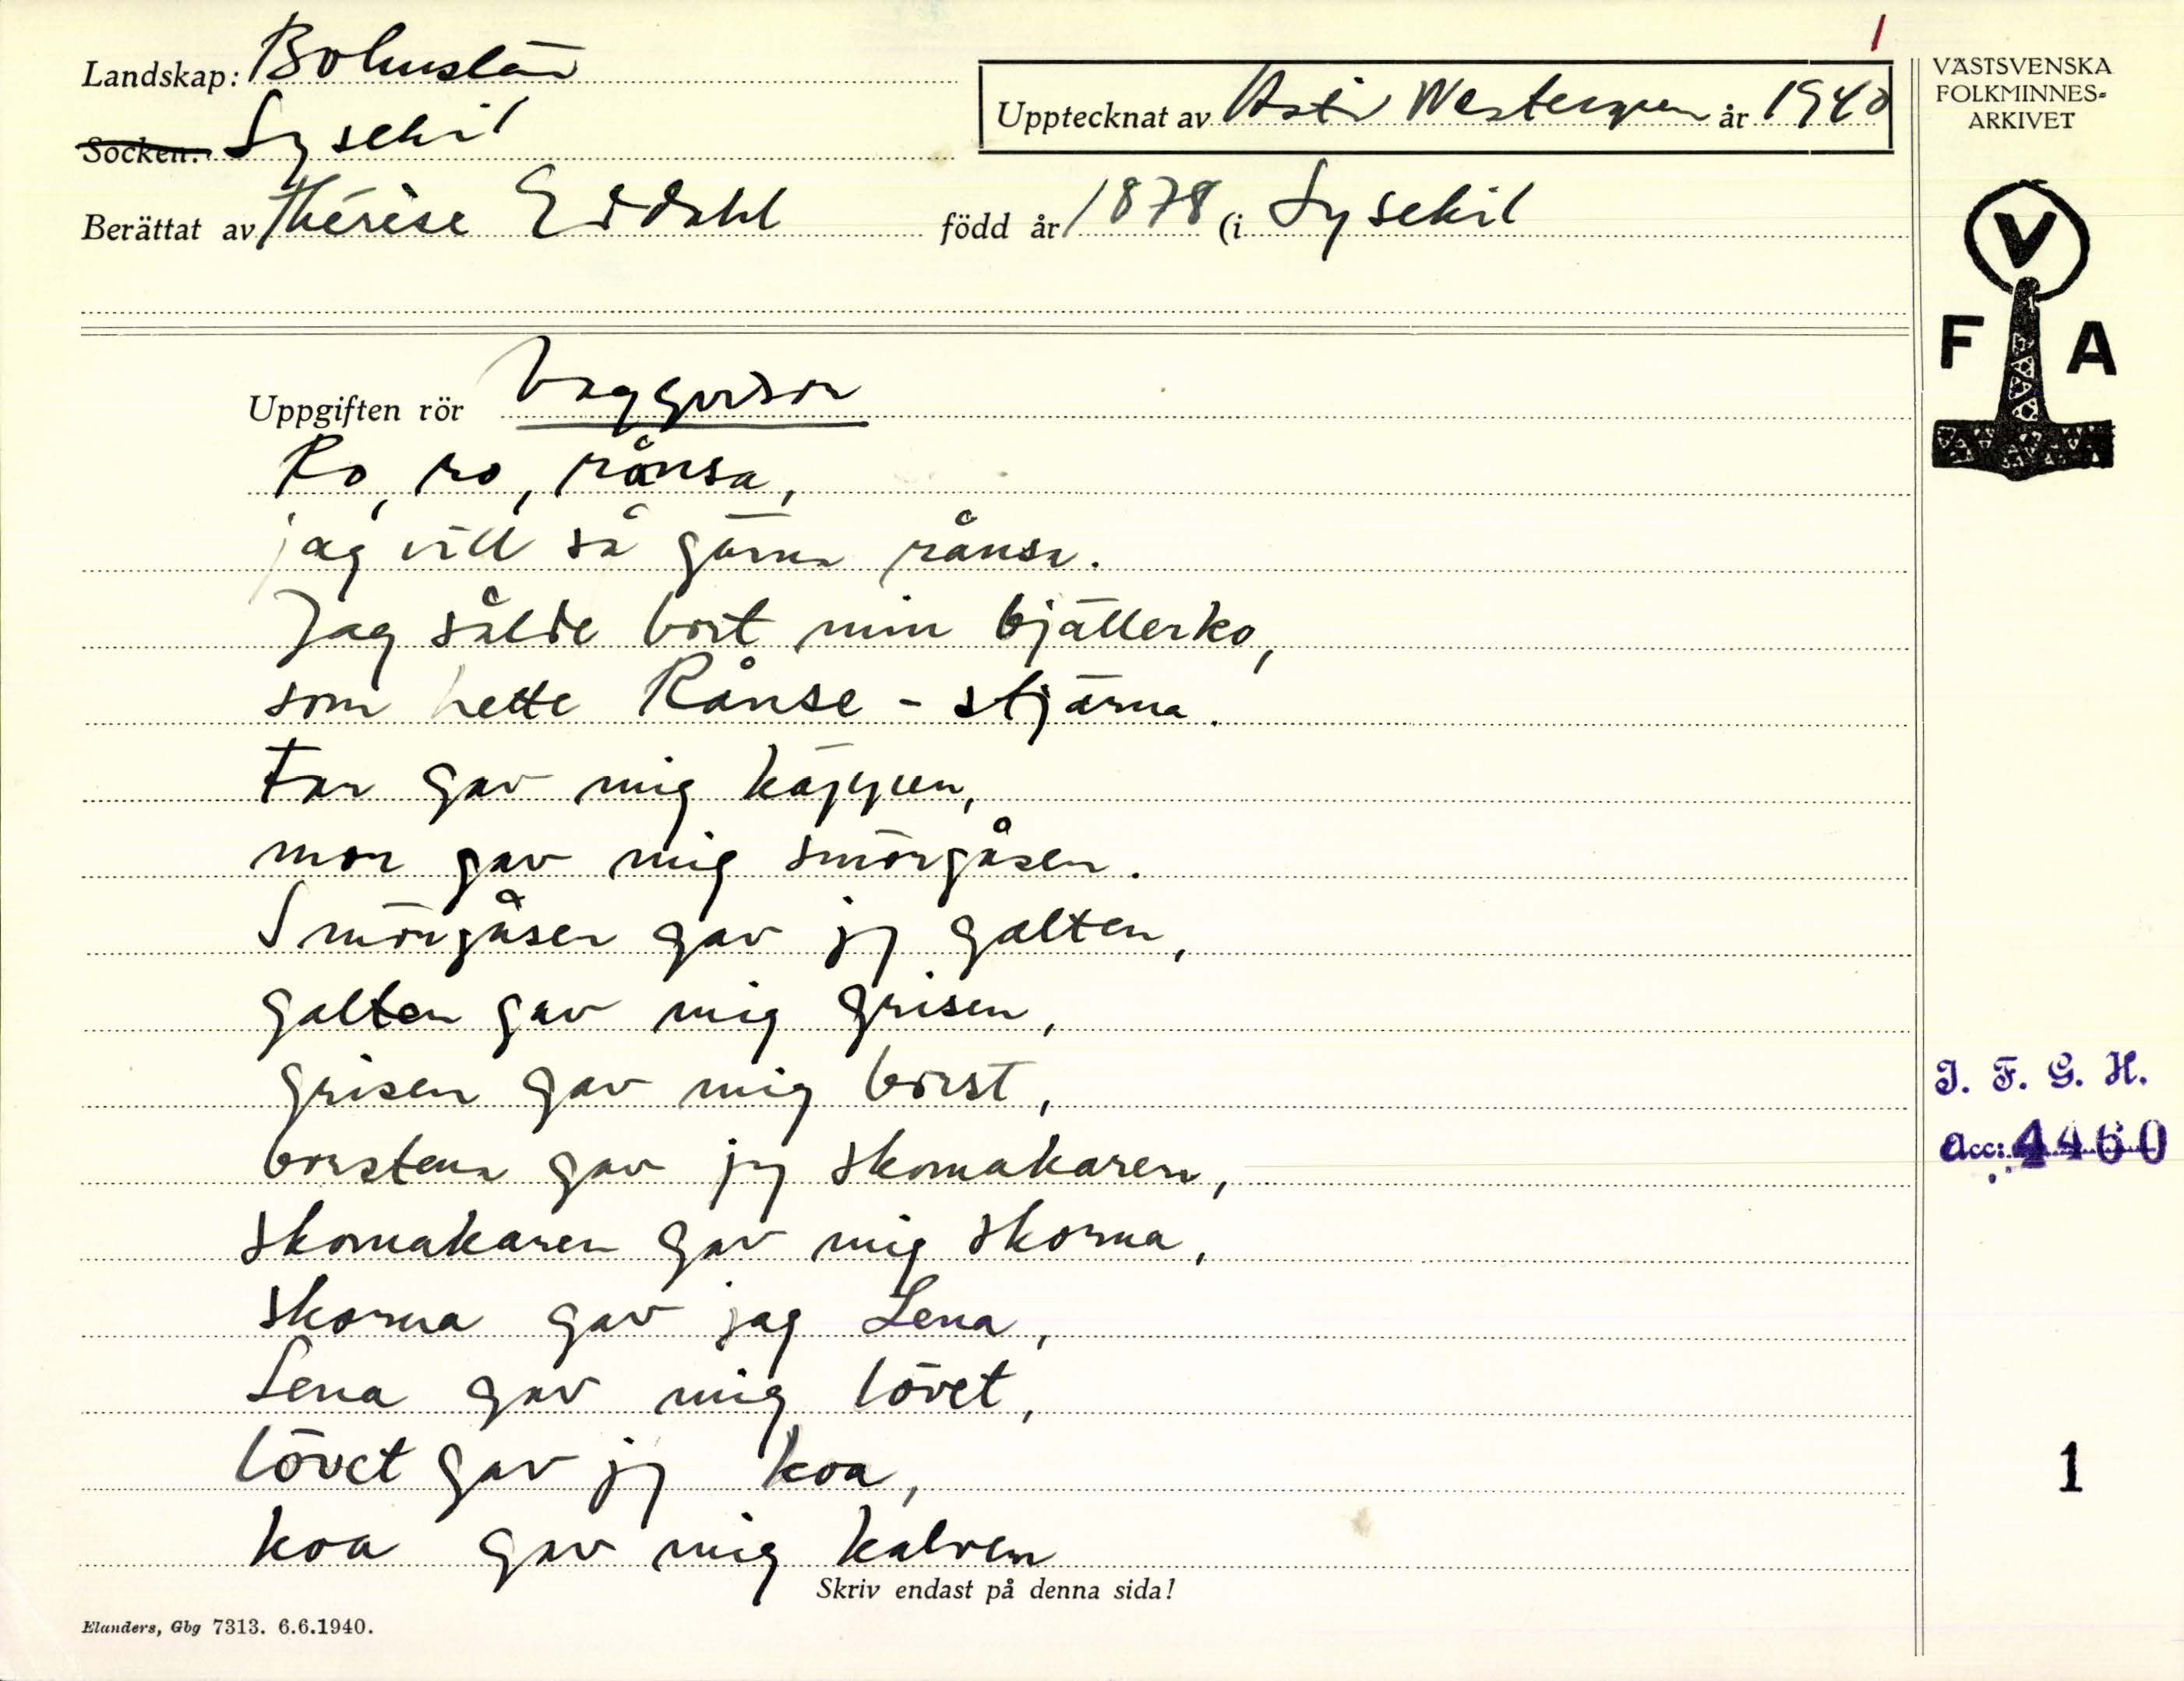 1
Landskap: Bohuslän
Upptecknat av Astri Westergren år 1940
VÄSTSVENSKA
FOLKMINNES-
ARKIVET
Socken: Lysekil
Berättat av Thérèse Eddahl född år 1878 (i Lysekil
V
F A
Uppgiften rör Vaggvisor
Ro, ro, rånsa,
jag vill så gärna rånsa.
Jag sålde bort min bjällerko,
som hette Rånse-stjärna.
Far gav mig käppen,
mor gav mig smörgåsen.
Smörgåsen gav jg galten,
galten gav mig grisen,
grisen gav mig borst,
borsten gav jg skomakaren,
skomakaren gav mig skorna,
skorna gav jag Lena,
Lena gav mig lövet,
lövet gav jg koa,
koa gav mig kalven
I. F. G. H.
Acc: 4460
1
Skriv endast på denna sida!
Elanders, Gbg 7313. 6.6.1940.